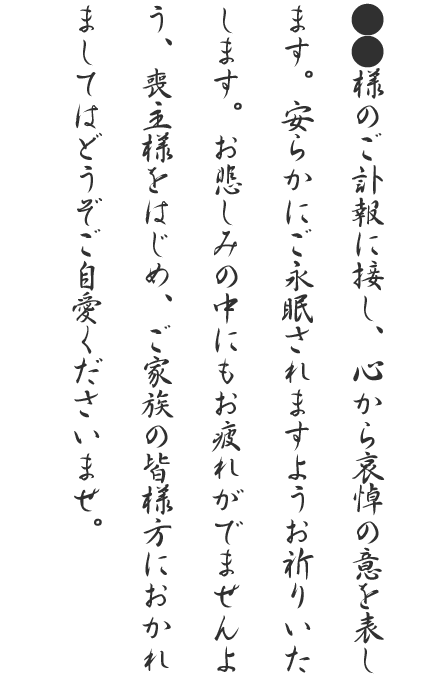 ●●様のご訃報に接し、心から哀悼の意を表し
ます。安らかにご永眠されますようお祈りいた
します。お悲しみの中にもお疲れがでませんよ
う、喪主様をはじめ、ご家族の皆様方におかれ
ましてはどうぞご自愛くださいませ。